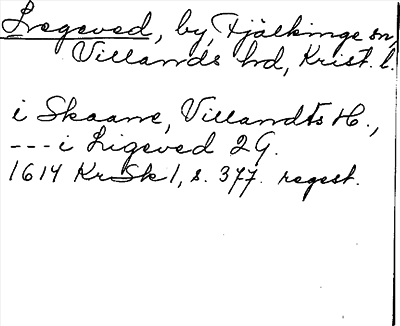 Legeved, by, Fjälkinge sn,
Villands hd, Krist. l.
i Skaane, Villandts H.,
--- i Ligeved 2 G.
1614 KrSk 1, s. 377. regest.